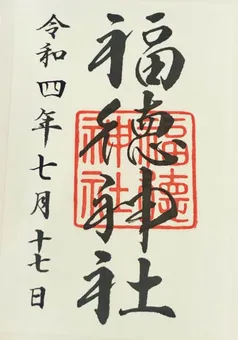 福徳神社
福徳神社
令和四年七月十七日